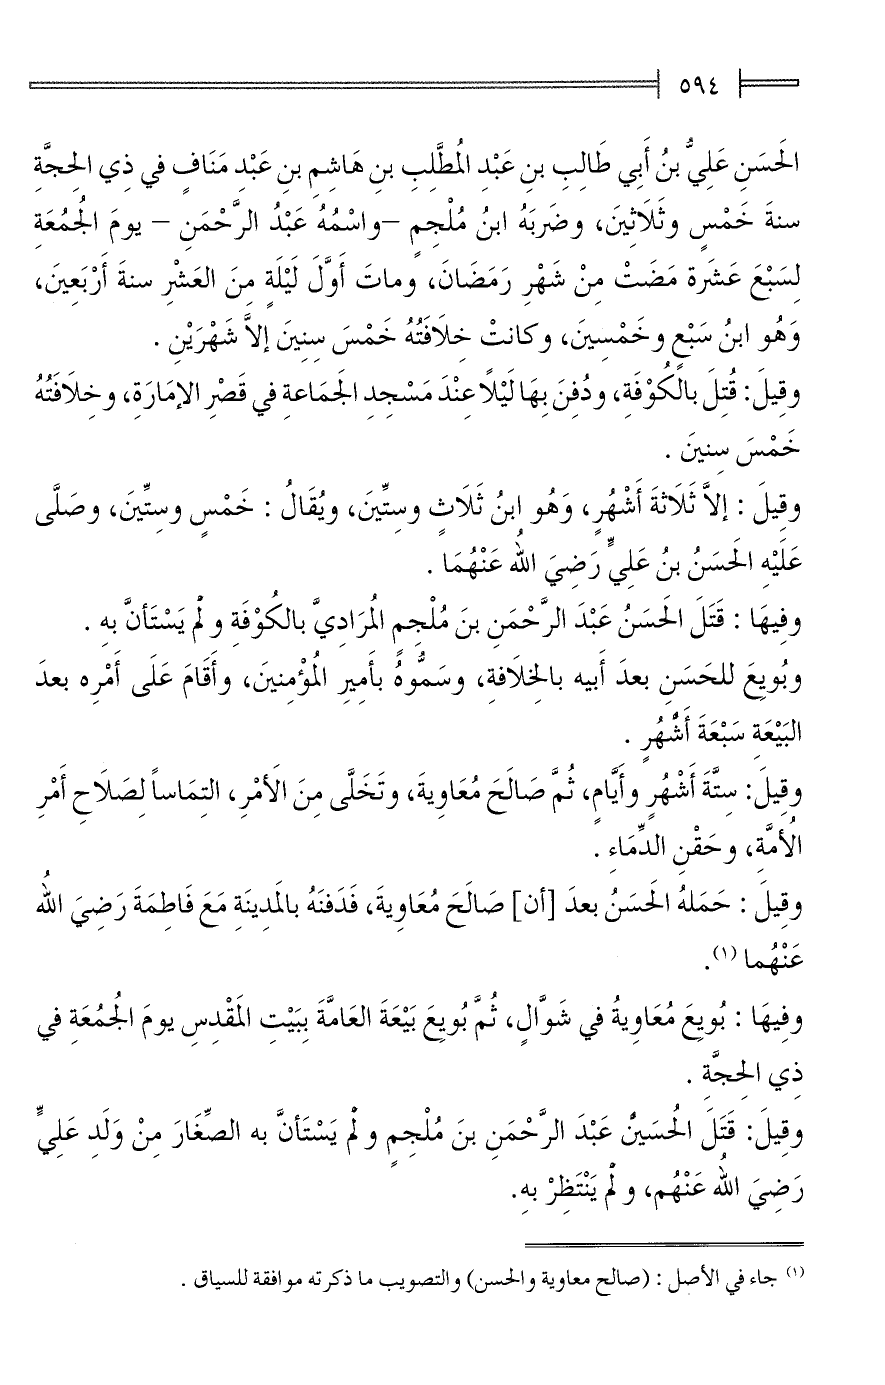 ٥٩٤
الحَسَنِ عَلِيُّ بنُ أَبي طَالِبِ بنِ عَبْدِ المُطَّلِبِ بنِ هَاشِمِ بنِ عَبْدِ مَنَافٍ في ذِي الحِجَّةِ
سنةَ خَمْسٍ وثَلَاثينَ، وضَرَبَهُ ابنُ مُلْجِمٍ –واسْمُهُ عَبْدُ الرَّحْمَنِ – يومَ الجُمُعَةِ
لِسَبْعَ عَشَرةَ مَضَتْ مِنْ شَهْرِ رَمَضَانَ، وماتَ أَوَّلَ لَيْلَةٍ مِنَ العَشْرِ سنةَ أَرْبَعِينَ،
وَهُو ابنُ سَبْعٍ وخَمْسِينَ، وكانتْ خِلَافَتُهُ خَمْسَ سِنِينَ إلاَّ شَهْرَيْنِ .
وقِيلَ: قُتِلَ بالكُوْفَةِ، ودُفِنَ بِهَا لَيْلًا عِنْدَ مَسْجِدِ الجَمَاعةِ في قَصْرِ الإمَارَةِ، وخِلَافَتُهُ
خَمْسَ سِنينَ .
وقِيلَ : إلاَّ ثَلَاثةَ أَشْهُرٍ، وَهُو ابنُ ثَلَاثٍ وسِتِّينَ، ويُقَالُ : خَمْسٍ وسِتِّينَ، وصَلَّى
عَلَيْهِ الحَسَنُ بنُ عَليٍّ رَضِيَ اللهُ عَنْهُمَا .
وفِيهَا : قَتَلَ الحَسَنُ عَبْدَ الرَّحْمَنِ بنَ مُلْجِمٍ المُرَادِيَّ بالكُوْفَةِ و لمْ يَسْتَأنَّ بهِ .
وبُويعَ للحَسَنِ بعدَ أبيه بالخِلَافةِ، وسَمُّوهُ بأَمِيرِ المُؤْمِنينَ، وأَقَامَ عَلَى أَمْرِه بعدَ
البَيْعَةِ سَبْعَةَ أَشْهُرٍ .
وقِيلَ: سِتَّةَ أَشْهُرٍ وأَيَّامٍ، ثُمَّ صَالَحَ مُعَاويةَ، وتَخَلَّى مِنَ الأَمْرِ، التِمَاساً لِصَلَاحِ أَمْرِ
الأُمَّةِ، وحَقْنِ الدِّمَاءِ .
وقِيلَ : حَمَلهُ الحَسَنُ بعدَ [أن] صَالَحَ مُعَاوِيةَ، فَدَفَنَهُ بالمَدِينَةِ مَعَ فَاطِمَةَ رَضِيَ اللهُ
عَنْهُما (١).
وفِيهَا : بُويعَ مُعَاويةُ في شَوَّالٍ، ثُمَّ بُويعَ بَيْعَةَ العَامَّةَ بِبَيْتِ المَقْدِسِ يومَ الجُمُعَةِ في
ذِي الحِجَّةِ .
وقِيلَ: قَتَلَ الحُسَينُ عَبْدَ الرَّحْمَنِ بنَ مُلْجِمٍ و لمْ يَسْتَأنَّ به الصِّغَارَ مِنْ وَلَدِ عَليٍّ
رَضِيَ اللهُ عَنْهُم، و لمْ يَنْتَظِرْ بهِ.
(١) جاء في الأصل : (صالح معاوية والحسن) والتصويب ما ذكرته موافقة للسياق .